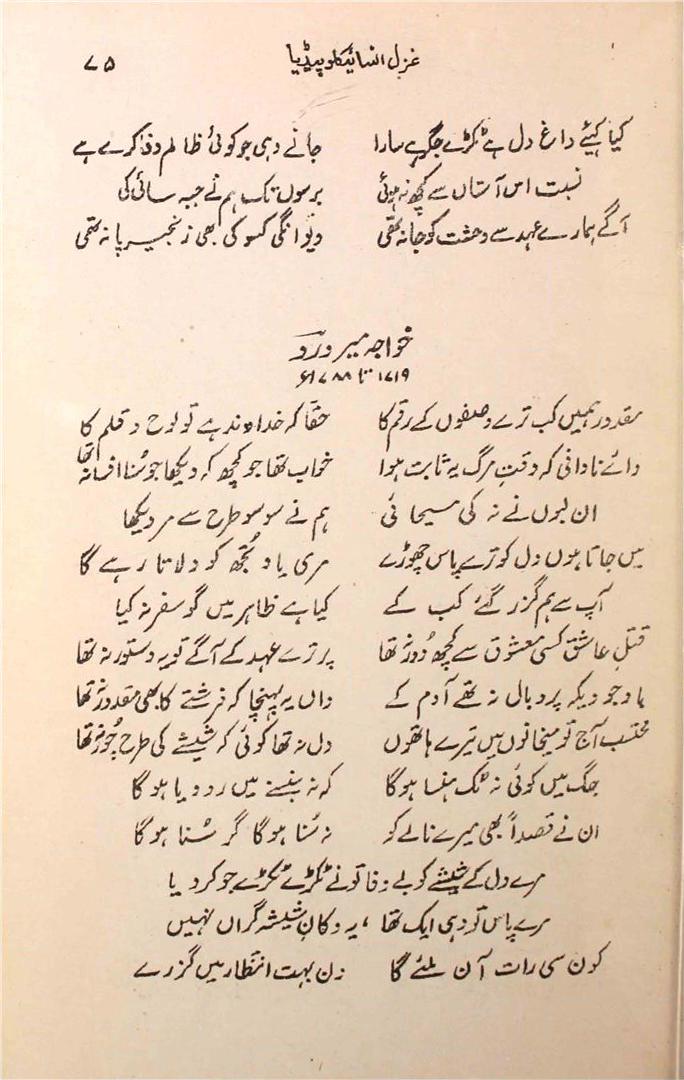 غزل انسائیکلوپیڈیا ۷۵
کیا کہیئے داغِ دل ہے ٹکڑے جگر ہے سارا جانے وہی جو کوئی ظالم وفا کرے ہے
نسبت اس آستاں سے کچھ نہ ہوئی برسوں تک ہم نے جبہ سائی کی
آگے ہمارے عہد سے وحشت کو جا نہ تھی دیوانگی کسو کی بھی زنجیر پا نہ تھی
خواجہ میر درد
۱۷۱۹ تا ۱۷۸۸ء
مقدور ہمیں کب ترے وصفوں کے رقم کا حقا کہ خداوند ہے تو لوح و قلم کا
وائے نادانی کہ وقتِ مرگ یہ ثابت ہوا خواب تھا جو کچھ کہ دیکھا جو سُنا افسانہ تھا
ان لبوں نے نہ کی مسیحائی ہم نے سو سو طرح سے مر دیکھا
میں جاتا ہوں دل کو ترے پاس چھوڑے مری یاد تجھ کو دلاتا رہے گا
آپ سے ہم گزر گئے کب کے کیا ہے ظاہر میں گو سفر نہ کیا
قتلِ عاشق کسی معشوق سے کچھ دُور نہ تھا پر ترے عہد کے آگے تو یہ دستور نہ تھا
باوجودیکہ پر و بال نہ تھے آدم کے واں یہ پہنچا کہ فرشتے کا بھی مقدور نہ تھا
محتسب آج تو میخانوں میں تیرے ہاتھوں دل نہ تھا کوئی کہ شیشے کی طرح چُور نہ تھا
جگ میں کوئی نہ ٹک ہنسا ہوگا کہ نہ ہنسنے میں رو دیا ہوگا
ان نے قصداً بھی میرے نالے کو نہ سُنا ہوگا گر سُنا ہوگا
مرے دل کے شیشے کو بے وفا تو نے ٹکڑے ٹکڑے جو کر دیا
مرے پاس تو وہی ایک تھا ، یہ دکانِ شیشہ گراں نہیں
کون سی رات آن ملئے گا دن بہت انتظار میں گزرے